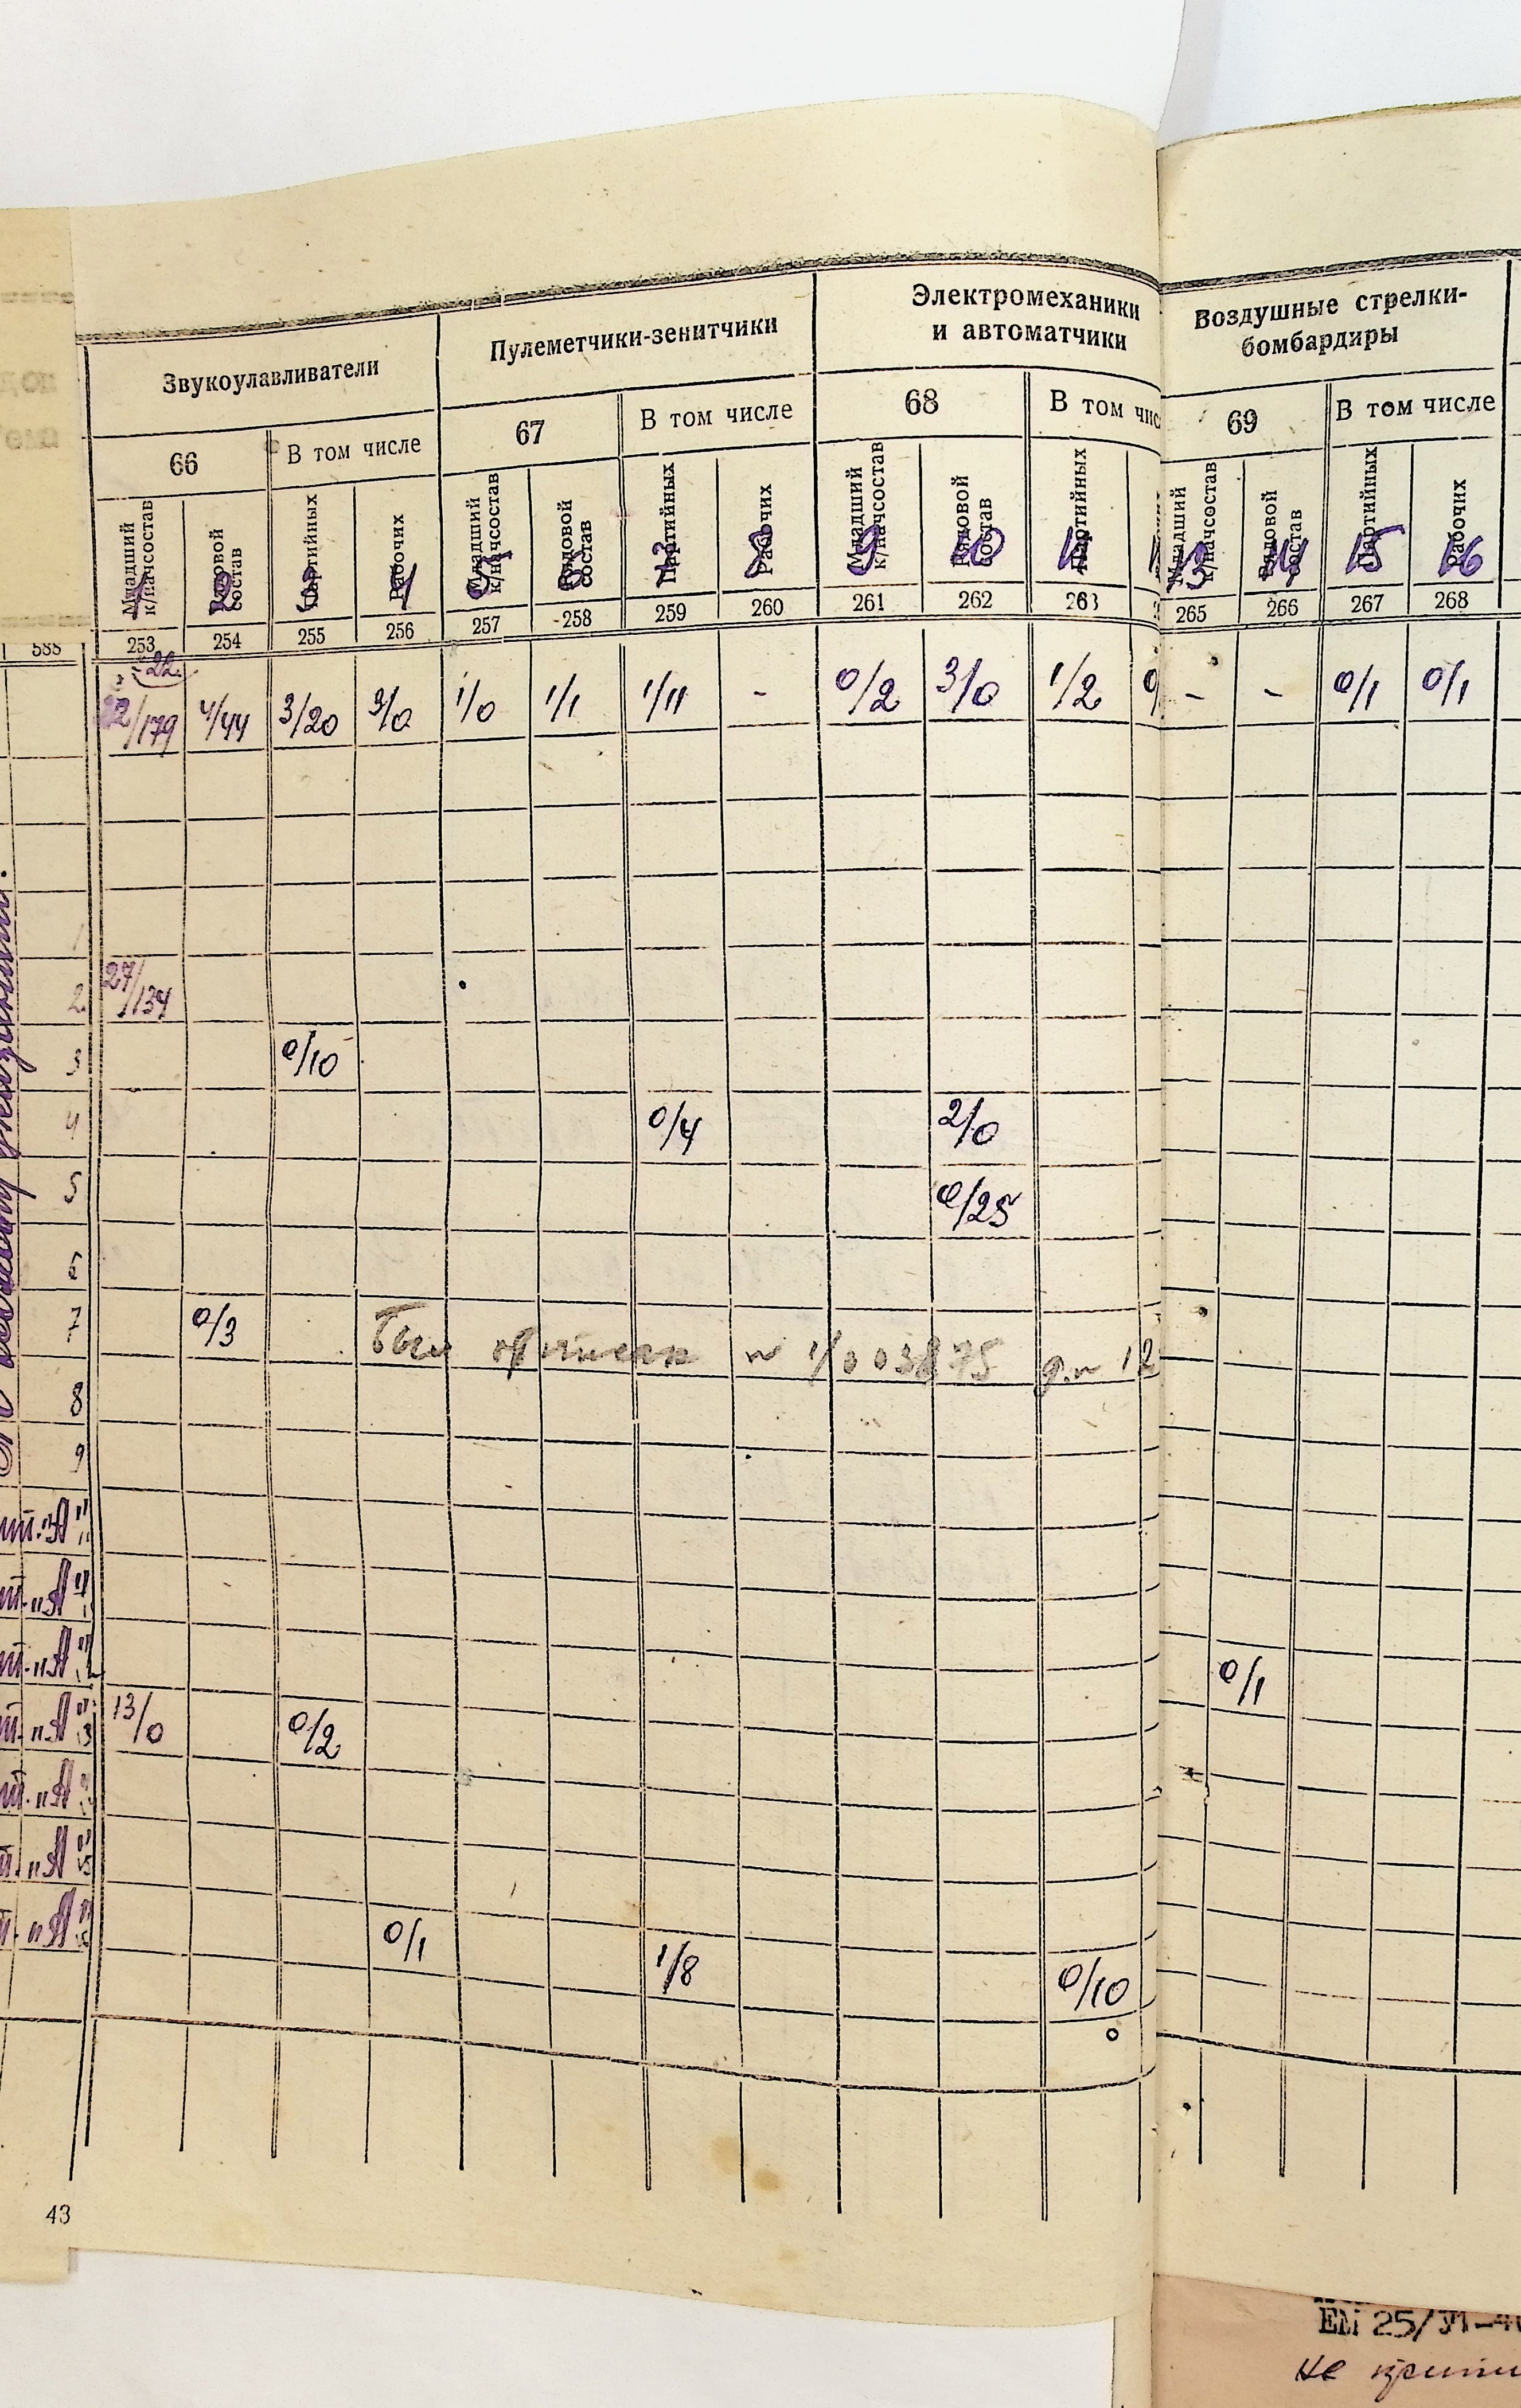 Звукоулавливатели Пулеметчики-зенитчики Электромеханики и автоматчики Воздушные стрелки-бомбардиры
66 В том числе 67 В том числе 68 В том чис 69 В том числе
Младший к/начсостав Рядовой состав Партийных Рабочих Младший к/начсостав Рядовой состав Партийных Рабочих Младший к/начсостав Рядовой состав Партийных Младший к/начсостав Рядовой состав Партийных Рабочих
1 2 3 4 5 6 7 8 9 10 11 13 14 15 16
588 253 254 255 256 257 258 259 260 261 262 263 265 266 267 268
22
22/179 4/44 3/20 3/0 1/0 1/1 1/11 - 0/2 3/0 1/2 0/ - - 0/1 0/1
1
2 27/134
3 0/10
4 0/4 2/0
5 0/25
6
7 0/3 1/003875 12
8
9
т. „А"
т. „А"
т. „А" 0/1
т. „А" 13/0 0/2
т. „А"
т. „А"
т. „А" 0/1 1/8 0/10
43
ЕМ 25/
не